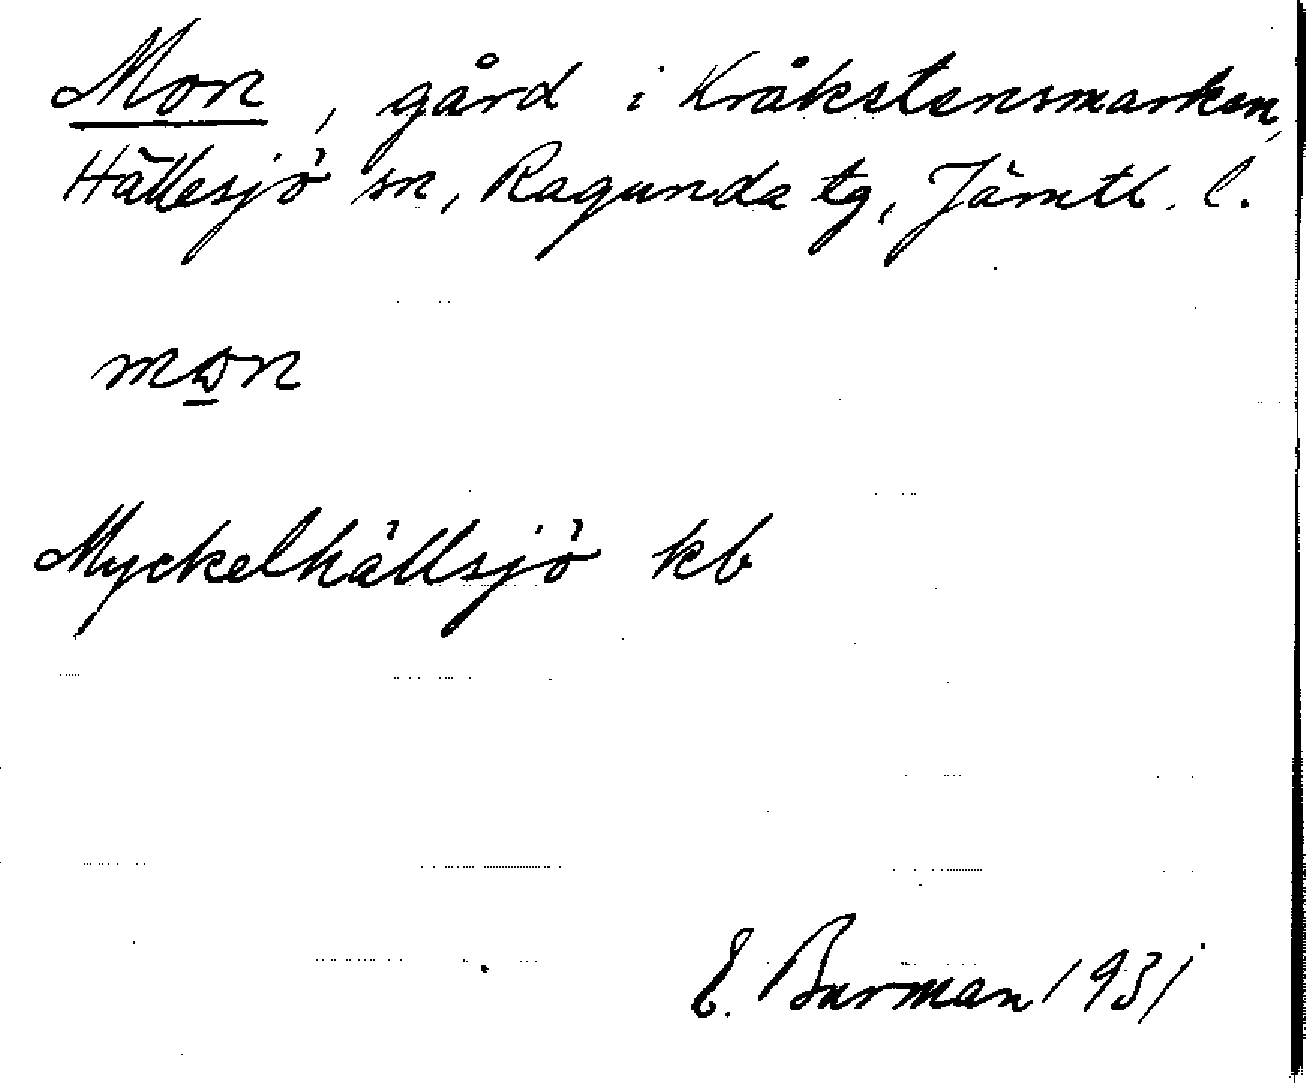 Mon, gård i Kråkstensmarken,
Hällesjö sn, Ragunda tg, Jämtl. l.
Myckelhällsjö kb
E. Burman 1931